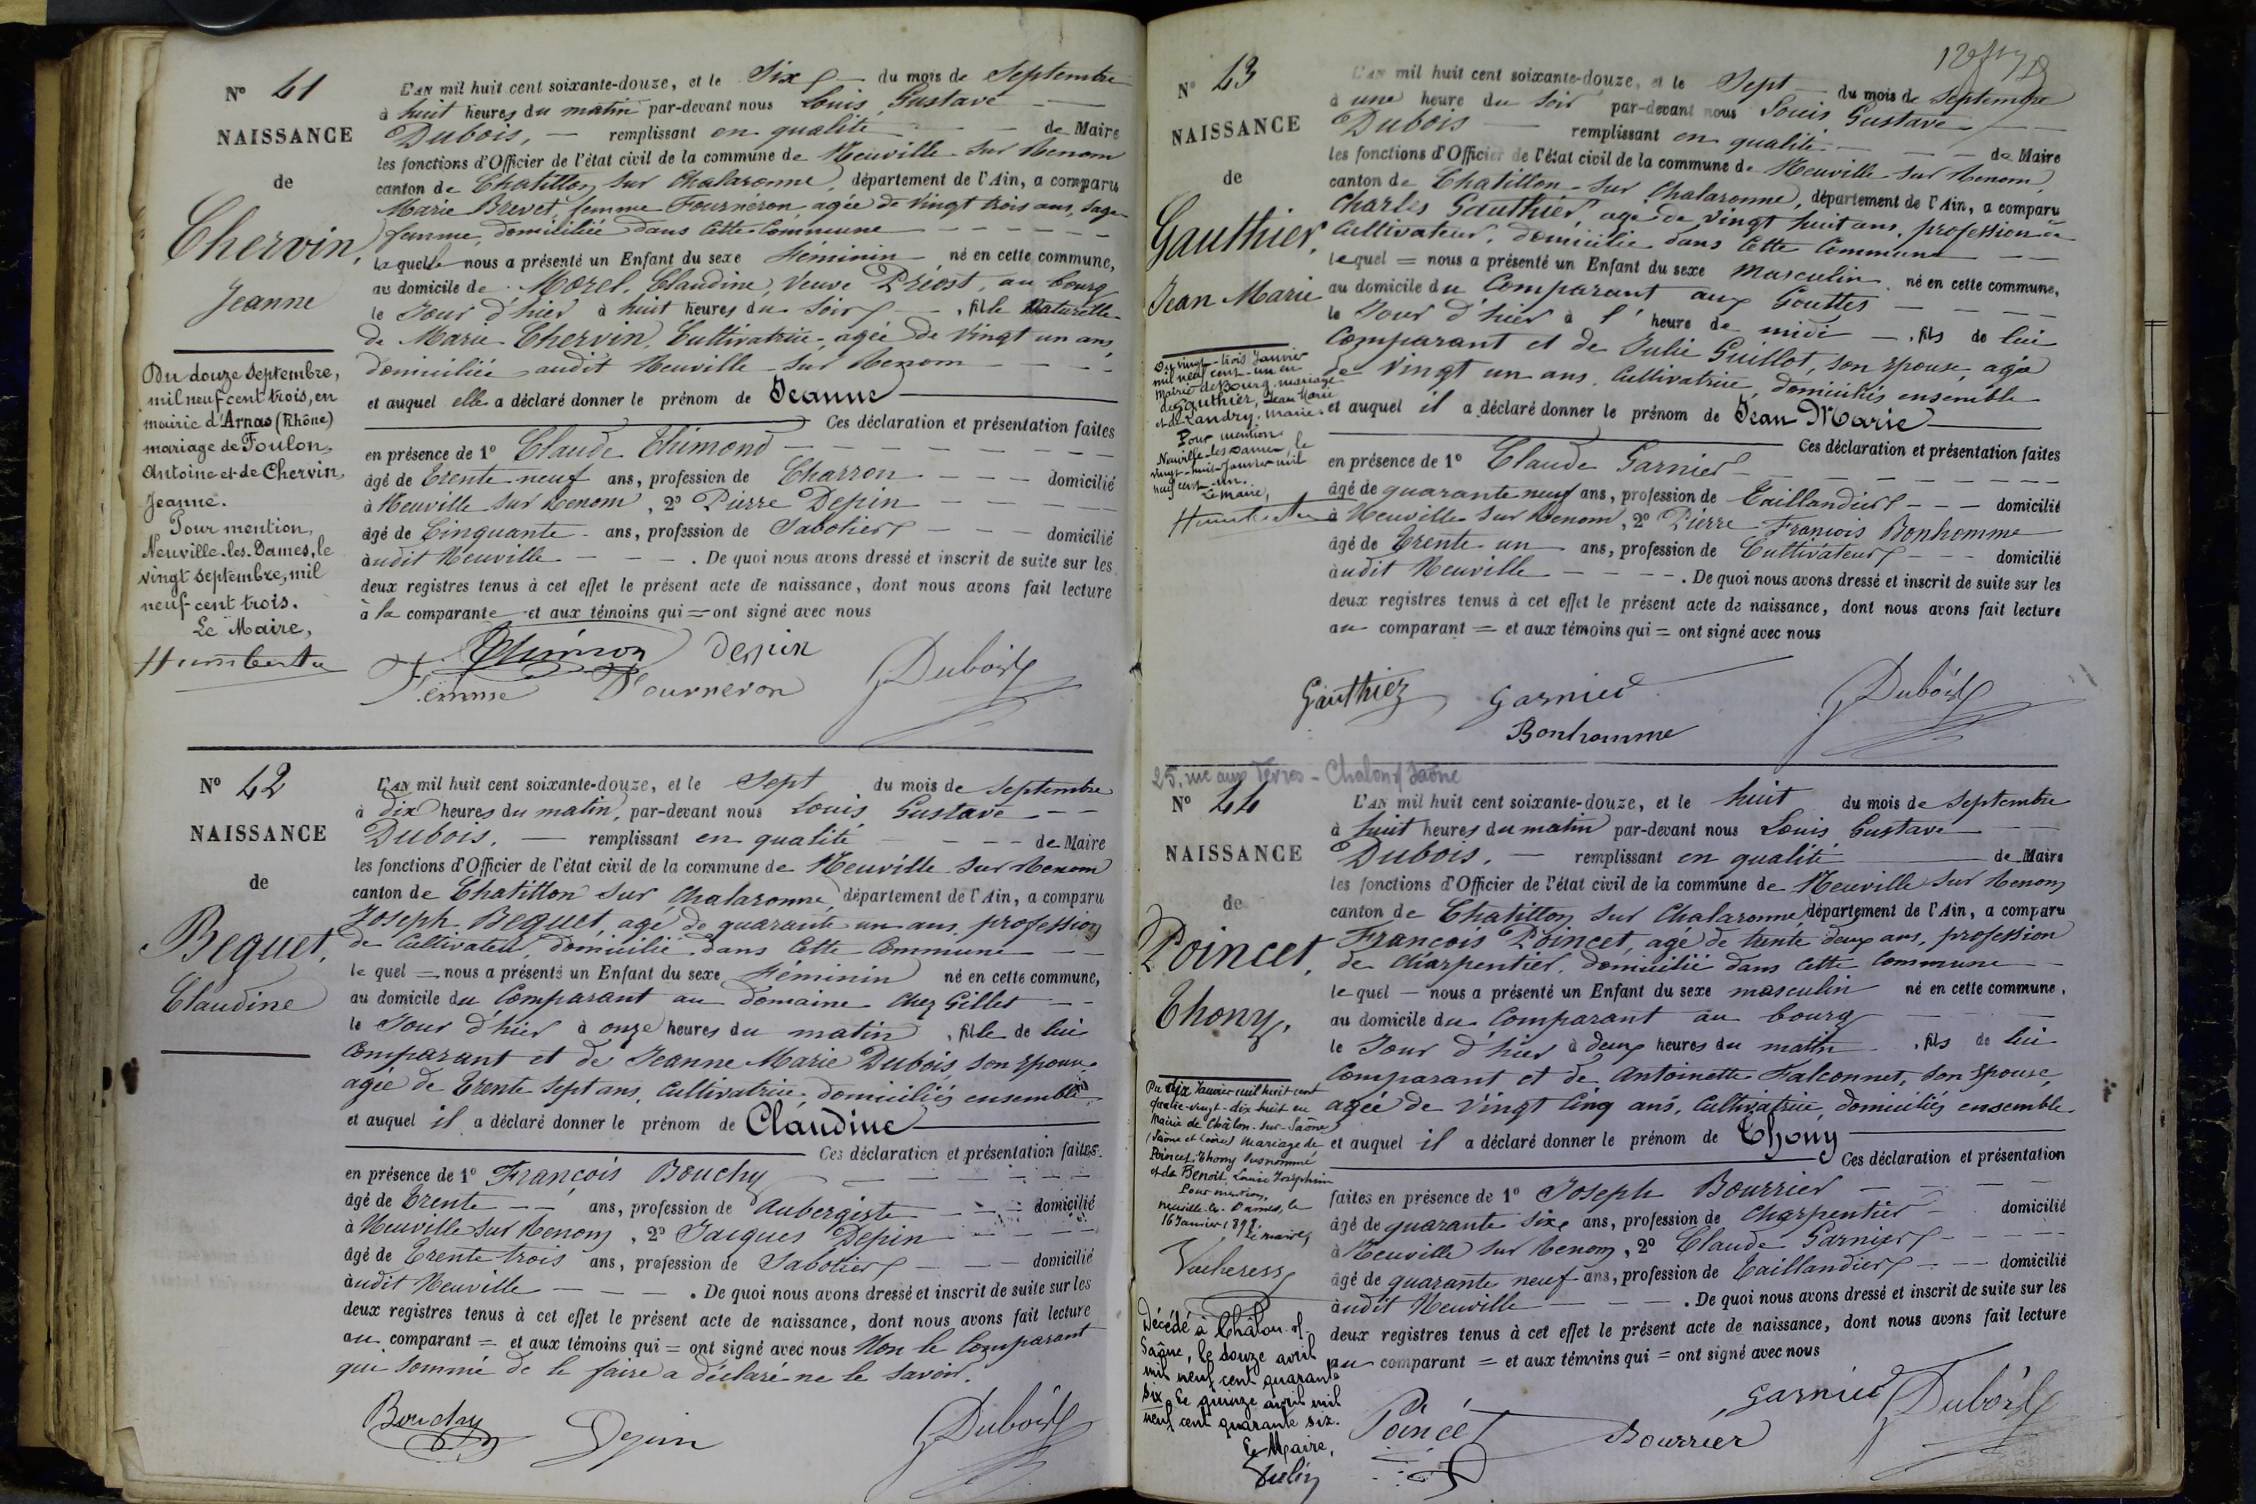 N° 41
NAISSANCE
de
Chervin,
Jeanne
Du douze Septembre,
mil neuf cent trois, en
mairie d'Arnas (Rhône)
mariage de Foulon,
Antoine et de Chervin,
Jeanne.
Pour mention,
Neuville-les-Dames, le
vingt septembre, mil
neuf-cent trois.
Le Maire,
L'AN mil huit cent soixante-douze, et le Six du mois de Septembre
à huit heures du matin par-devant nous Louis Gustave
Dubois, remplissant en qualité de Maire
les fonctions d'Officier de l'état civil de la commune de Neuville sur Renom
canton de Chatillon sur Chalaronne, département de l'Ain, a comparu
Marie Brevet femme Fournéron, agée de vingt trois ans, Sage-
femme, domiciliée dans cette commune
laquelle nous a présenté un Enfant du sexe féminin né en cette commune,
au domicile de Morel, Claudine, Veuve Priost, au bourg
le Jour d'hier à huit heures du Soir, fille Naturelle
de Marie Chervin, Cultivatrice, agée de vingt un ans,
domiciliée audit Neuville sur Renom
et auquel elle a déclaré donner le prénom de Jeanne
Ces déclaration et présentation faites
en présence de 1° Claude Thimond
âgé de Trente neuf ans, profession de Charron domicilié
à Neuville sur Renom, 2° Pierre Depin
âgé de Cinquante ans, profession de Sabotier domicilié
audit Neuville. De quoi nous avons dressé et inscrit de suite sur les
deux registres tenus à cet effet le présent acte de naissance, dont nous avons fait lecture
à la comparante et aux témoins qui = ont signé avec nous
Thimon Depin
Femme Fourneron Dubois
N° 42
NAISSANCE
de
Bequet,
Claudine
L'AN mil huit cent soixante-douze, et le Sept du mois de Septembre
à dix heures du matin, par-devant nous Louis Gustave
Dubois, remplissant en qualité de Maire
les fonctions d'Officier de l'état civil de la commune de Neuville sur Renom
canton de Chatillon sur Chalaronne, département de l'Ain, a comparu
Joseph Bequet, agé de quarante un ans, profession
de Cultivateur, domicilié dans cette commune
le quel = nous a présenté un Enfant du sexe féminin né en cette commune,
au domicile du Comparant au domaine Chez Gillet
le Jour d'hier à onze heures du matin, fille de lui
Comparant et de Jeanne Marie Dubois, son épouse
agée de Trente Sept ans, Cultivatrice, domiciliés ensemble,
et auquel il a déclaré donner le prénom de Claudine
Ces déclaration et présentation faites
en présence de 1° François Bouchy
âgé de Trente ans, profession de Aubergiste domicilié
à Neuville sur Renom, 2° Jacques Depin
âgé de Trente trois ans, profession de Sabotier domicilié
audit Neuville. De quoi nous avons dressé et inscrit de suite sur les
deux registres tenus à cet effet le présent acte de naissance, dont nous avons fait lecture
au comparant = et aux témoins qui = ont signé avec nous Non le Comparant
qui Sommé de le faire a déclaré ne le Savoir.
Bouchy Depin Dubois
N° 43
NAISSANCE
de
Gauthier,
Jean Marie
Du vingt-trois Janvier
mil neuf cent-un en
mairie de Bourg, mariage
de Gauthier, Jean Marie
et de Landry, Marie.
Pour mention
Neuville-les-Dames, le
vingt-huit Janvier mil
neuf cent-un.
Le Maire,
L'AN mil huit cent soixante-douze, et le Sept du mois de Septembre
à une heure du Soir par-devant nous Louis Gustave
Dubois remplissant en qualité de Maire
les fonctions d'Officier de l'état civil de la commune de Neuville sur Renom,
canton de Chatillon sur Chalaronne, département de l'Ain, a comparu
Charles Gauthier, agé de vingt huit ans, profession de
Cultivateur, domicilié dans cette Commune
le quel = nous a présenté un Enfant du sexe masculin né en cette commune,
au domicile du Comparant aux Gouttes
le Jour d'hier à l'heure de midi, fils de lui
Comparant et de Julie Guillot, son épouse, agée
de vingt un ans, Cultivatrice, domiciliés ensemble
et auquel il a déclaré donner le prénom de Jean Marie
Ces déclaration et présentation faites
en présence de 1° Claude Garnier
âgé de quarante neuf ans, profession de Taillandier domicilié
à Neuville sur Renom, 2° Pierre François Bonhomme
âgé de Trente un ans, profession de Cultivateur domicilié
audit Neuville. De quoi nous avons dressé et inscrit de suite sur les
deux registres tenus à cet effet le présent acte de naissance, dont nous avons fait lecture
au comparant = et aux témoins qui = ont signé avec nous
Gauthier Garnier Dubois
Bonhomme
25, rue aux Fèvres - Chalon s/ Saône
N° 44
NAISSANCE
de
Poincet,
Thony,
Du dix Janvier mil huit cent
quatre-vingt-dix huit en
Mairie de Châlon-sur-Saône
(Saône et Loire) Mariage de
Poincet, Thony susnommé
et de Benoit, Louise Joséphine
Pour mention,
Neuville-les-Dames, le
16 Janvier 1898.
Le maire,
Décédé à Châlon s/
Saône, le douze avril
mil neuf cent quarante
six. Le quinze avril mil
neuf cent quarante six.
Le Maire,
L'AN mil huit cent soixante-douze, et le huit du mois de Septembre
à huit heures du matin par-devant nous Louis Gustave
Dubois, remplissant en qualité de Maire
les fonctions d'Officier de l'état civil de la commune de Neuville sur Renom
canton de Chatillon sur Chalaronne, département de l'Ain, a comparu
François Poincet, agé de trente deux ans, profession
de Charpentier, domicilié dans cette commune
le quel — nous a présenté un Enfant du sexe masculin né en cette commune,
au domicile du Comparant au bourg
le Jour d'hier à deux heures du matin, fils de lui
Comparant et de Antoinette Falconnet, son épouse,
agée de vingt cinq ans, cultivatrice, domiciliés ensemble
et auquel il a déclaré donner le prénom de Thony
Ces déclaration et présentation
faites en présence de 1° Joseph Bourrier
âgé de quarante six ans, profession de Charpentier domicilié
à Neuville sur Renom, 2° Claude Garnier
âgé de quarante neuf ans, profession de Taillandier domicilié
audit Neuville. De quoi nous avons dressé et inscrit de suite sur les
deux registres tenus à cet effet le présent acte de naissance, dont nous avons fait lecture
au comparant = et aux témoins qui = ont signé avec nous
Poincet Bourrier Garnier Dubois